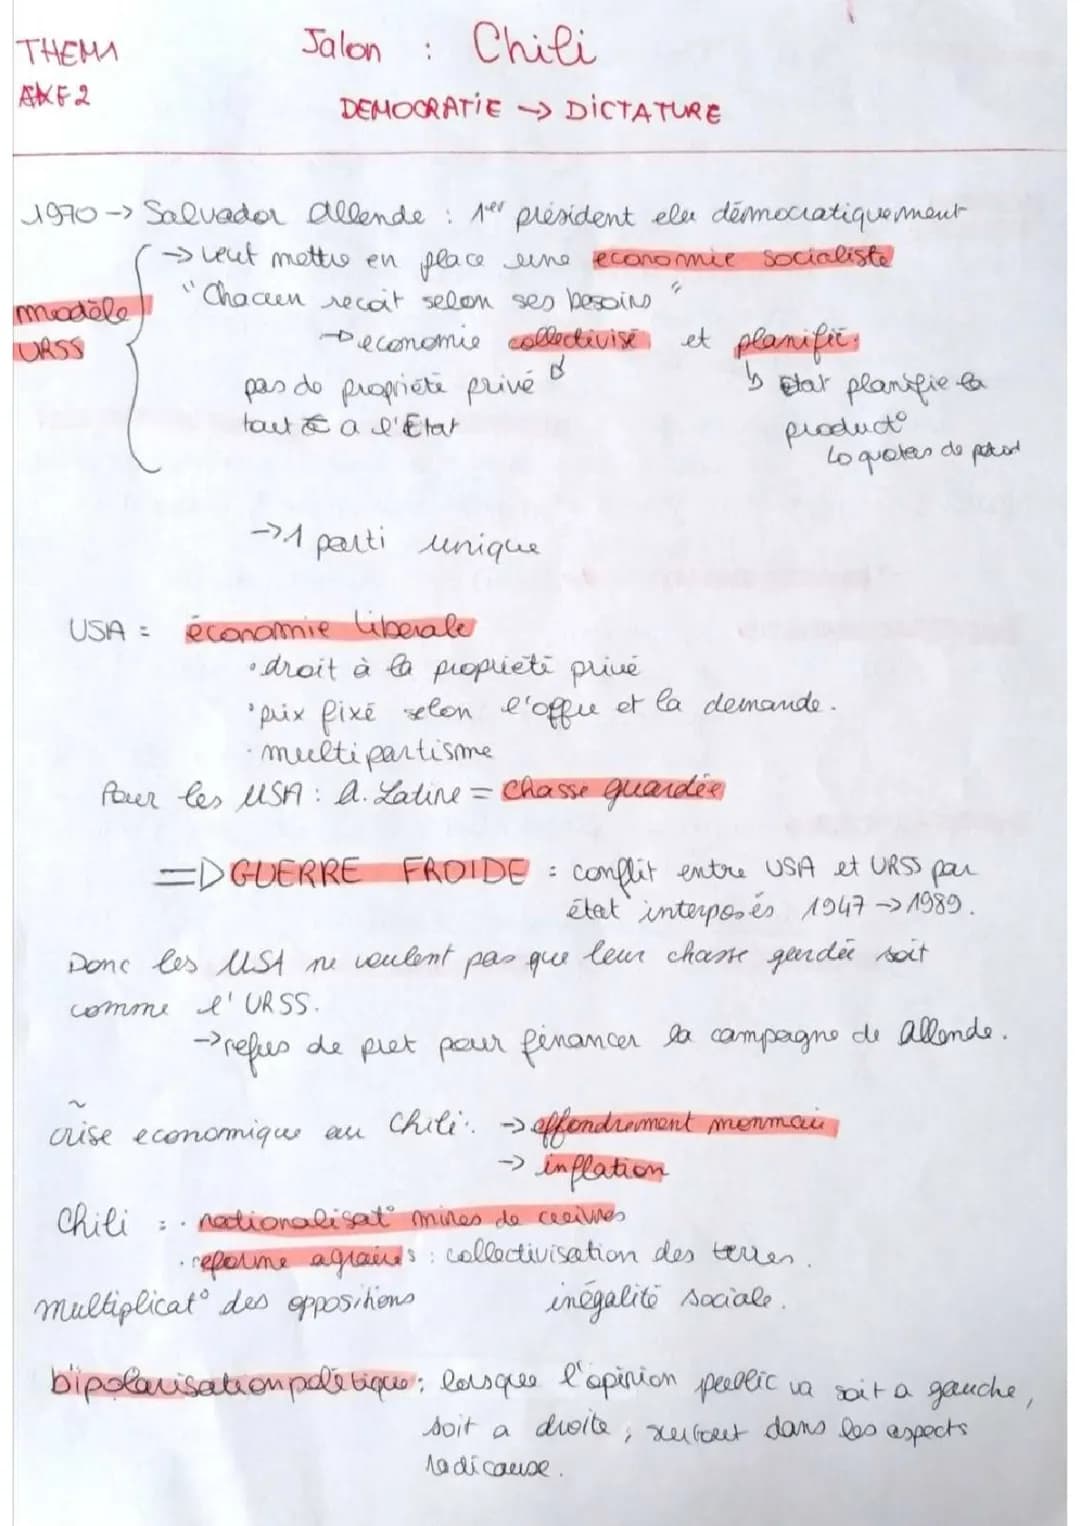 THEM1
Jalon : Chili
AXE2
DEMOCRATIE → DICTATURE
1970 → Salvador Allende : 1er président elu démocratiquement
→ veut mettre en place une economie socialiste
"Chacun reçoit selon ses besoins"
modèle
URSS
→ economie collectivisé et planifié.
pas de propriété privé
tout à l'État
↳ État planifie la
product°
↳ quotas de
→ 1 parti unique
USA = économie liberale
• droit à la propriété privé
• prix fixé selon l'offre et la demande.
· multipartisme
Pour les USA : A. Latine = chasse guardée
=> GUERRE FROIDE : conflit entre USA et URSS par
état interposés 1947 → 1989.
Donc les USA ne veulent pas que leur chasse gardée soit
comme l'URSS.
→ refus de pret pour financer la campagne de Allende.
crise economique au Chili : → effondrement monnaie
→ inflation
Chili : · nationalisat° mines de cuivres
· reforme agraires : collectivisation des terres.
multiplicat° des oppositions inégalité sociale.
bipolarisation politique : lorsque l'opinion public va soit a gauche,
soit a droite ; surtout dans les aspects
radicause.